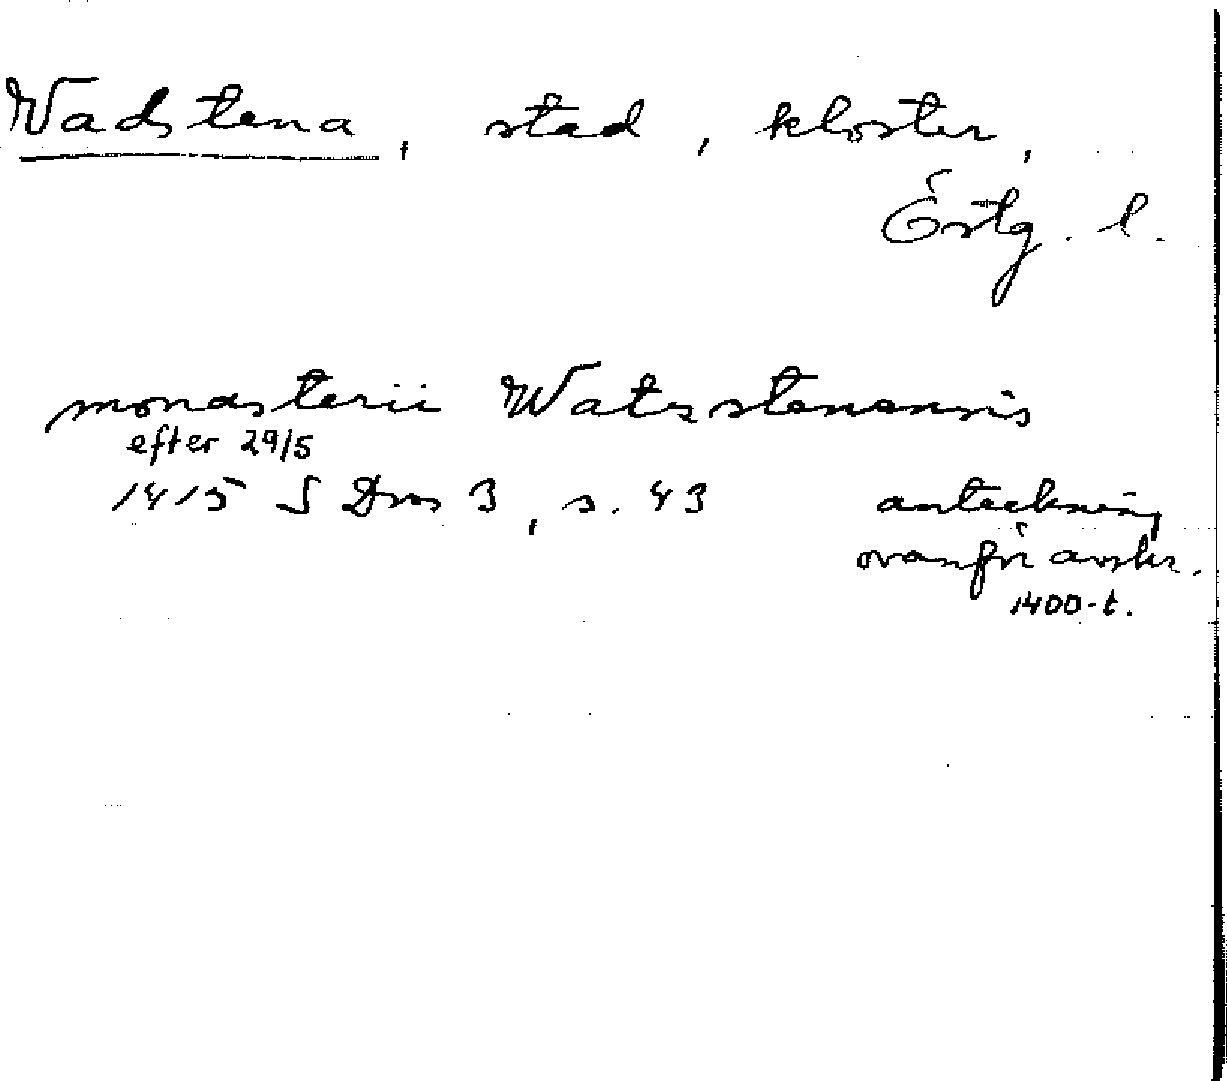 Wadstena, stad, kloster,
Östg. l.
monasterii Watzstenensis
efter 29/5
1415 S Dns 3, s. 43 anteckning
ovanför avskr.
1400-t.